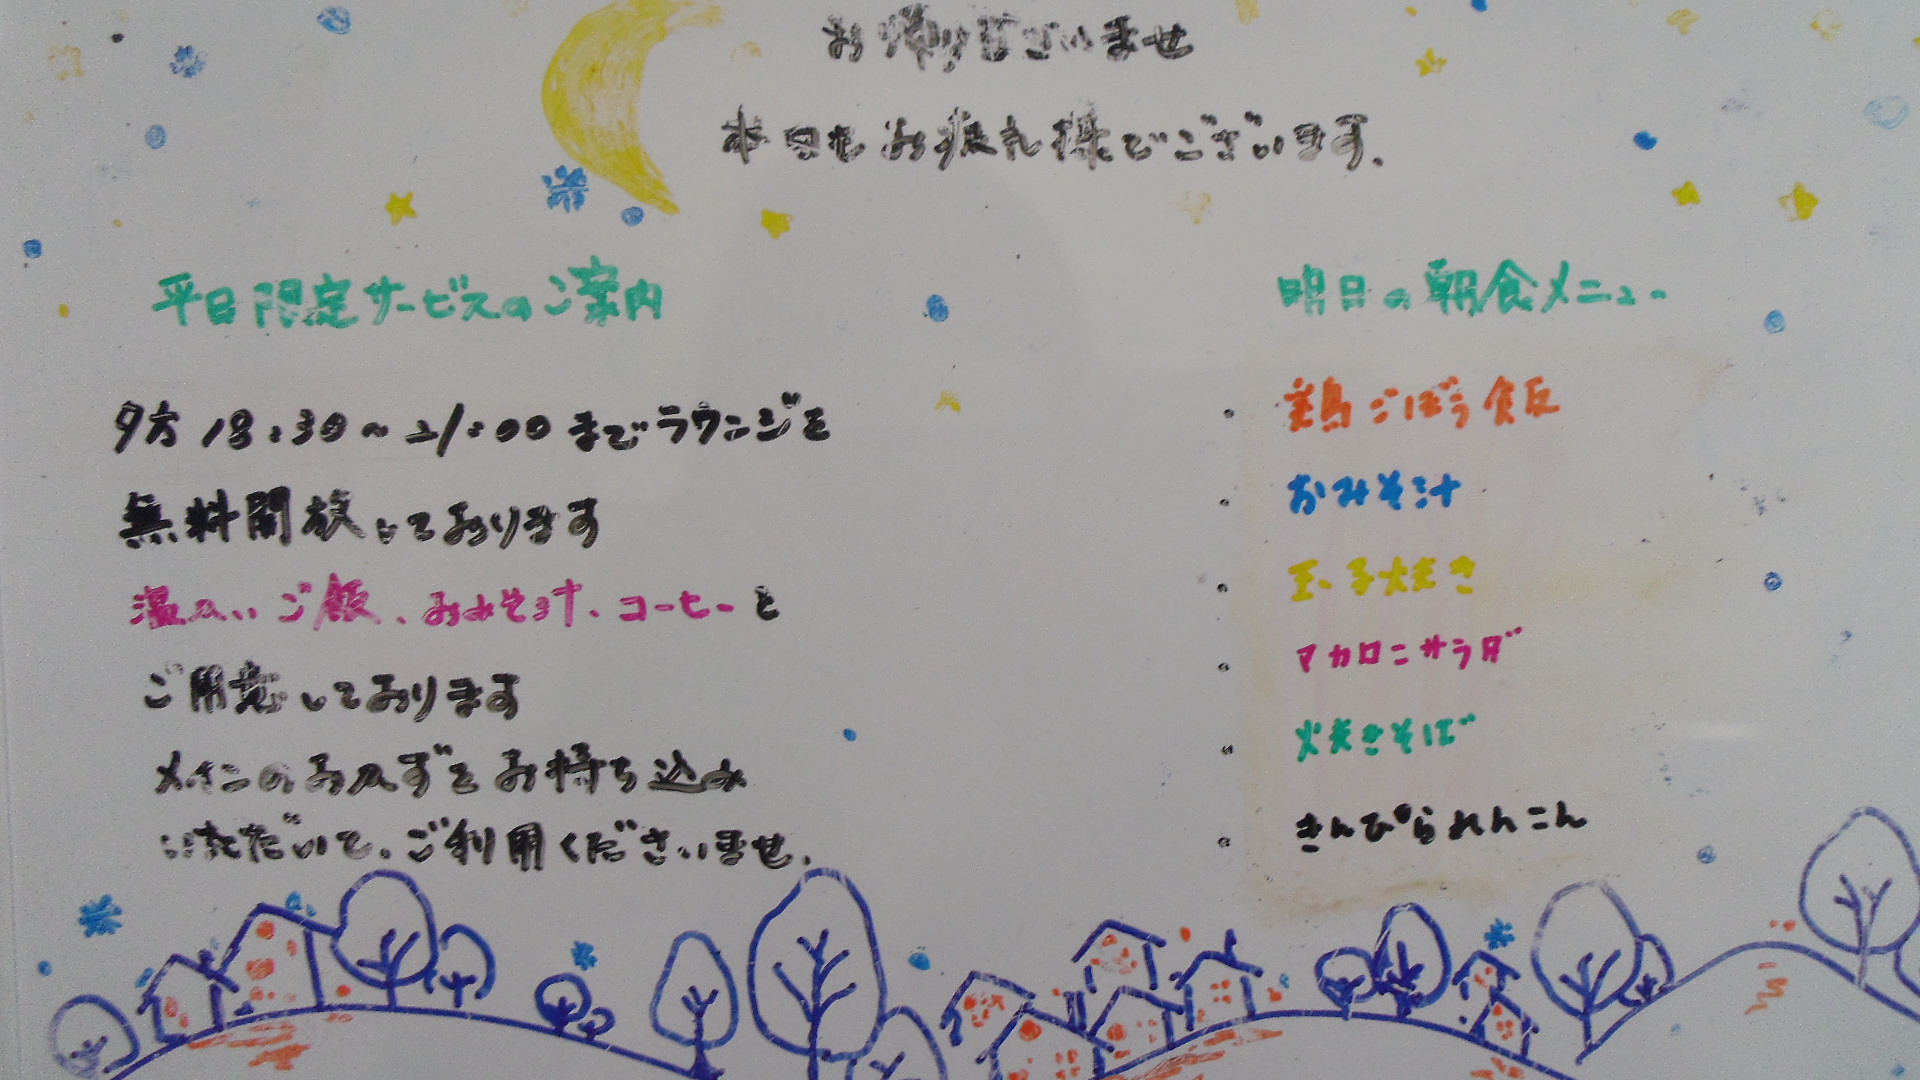 お帰りなさいませ
本日もお疲れ様でございます.
平日限定サービスのご案内
夕方 18:30～21:00 までラウンジを
無料開放しております
温かいご飯、おみそ汁、コーヒーと
ご用意しております
メインのおかずをお持ち込み
いただいて、ご利用くださいませ.
明日の朝食メニュー
・鶏ごぼう飯
・おみそ汁
・玉子焼き
・マカロニサラダ
・焼きそば
・きんぴられんこん